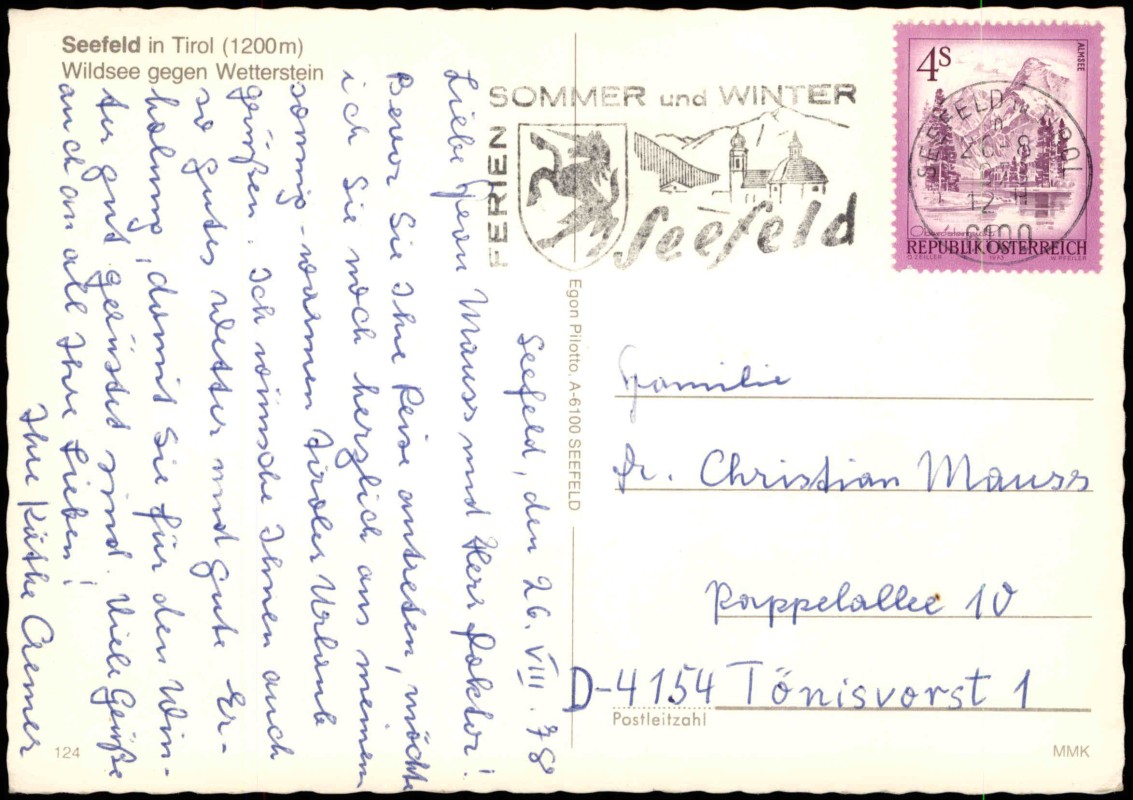 Seefeld in Tirol (1200m)
Wildsee gegen Wetterstein
Seefeld, den 26. VIII. 78
Liebe Frau Mauss und Herr Doktor!
Bevor Sie Ihre Reise antreten, möchte
ich Sie noch herzlich aus meinem
sonnig-warmen Tiroler Urlaub
grüßen. Ich wünsche Ihnen auch
so gutes Wetter und gute Er-
holung, damit Sie für den Win-
ter gut gerüstet sind. Viele Grüße
auch an all Ihre Lieben!
Ihre Käthe Cremer
124
Egon Pilotto, A-6100 SEEFELD
FERIEN
SOMMER und WINTER
Seefeld
4S
ALMSEE
Oberösterreich
REPUBLIK ÖSTERREICH
O. ZEILLER 1973 W. PFEILER
SEEFELD TIROL
12
6100
Familie
Dr. Christian Mauss
Pappelallee 10
D-4154 Tönisvorst 1
Postleitzahl
MMK